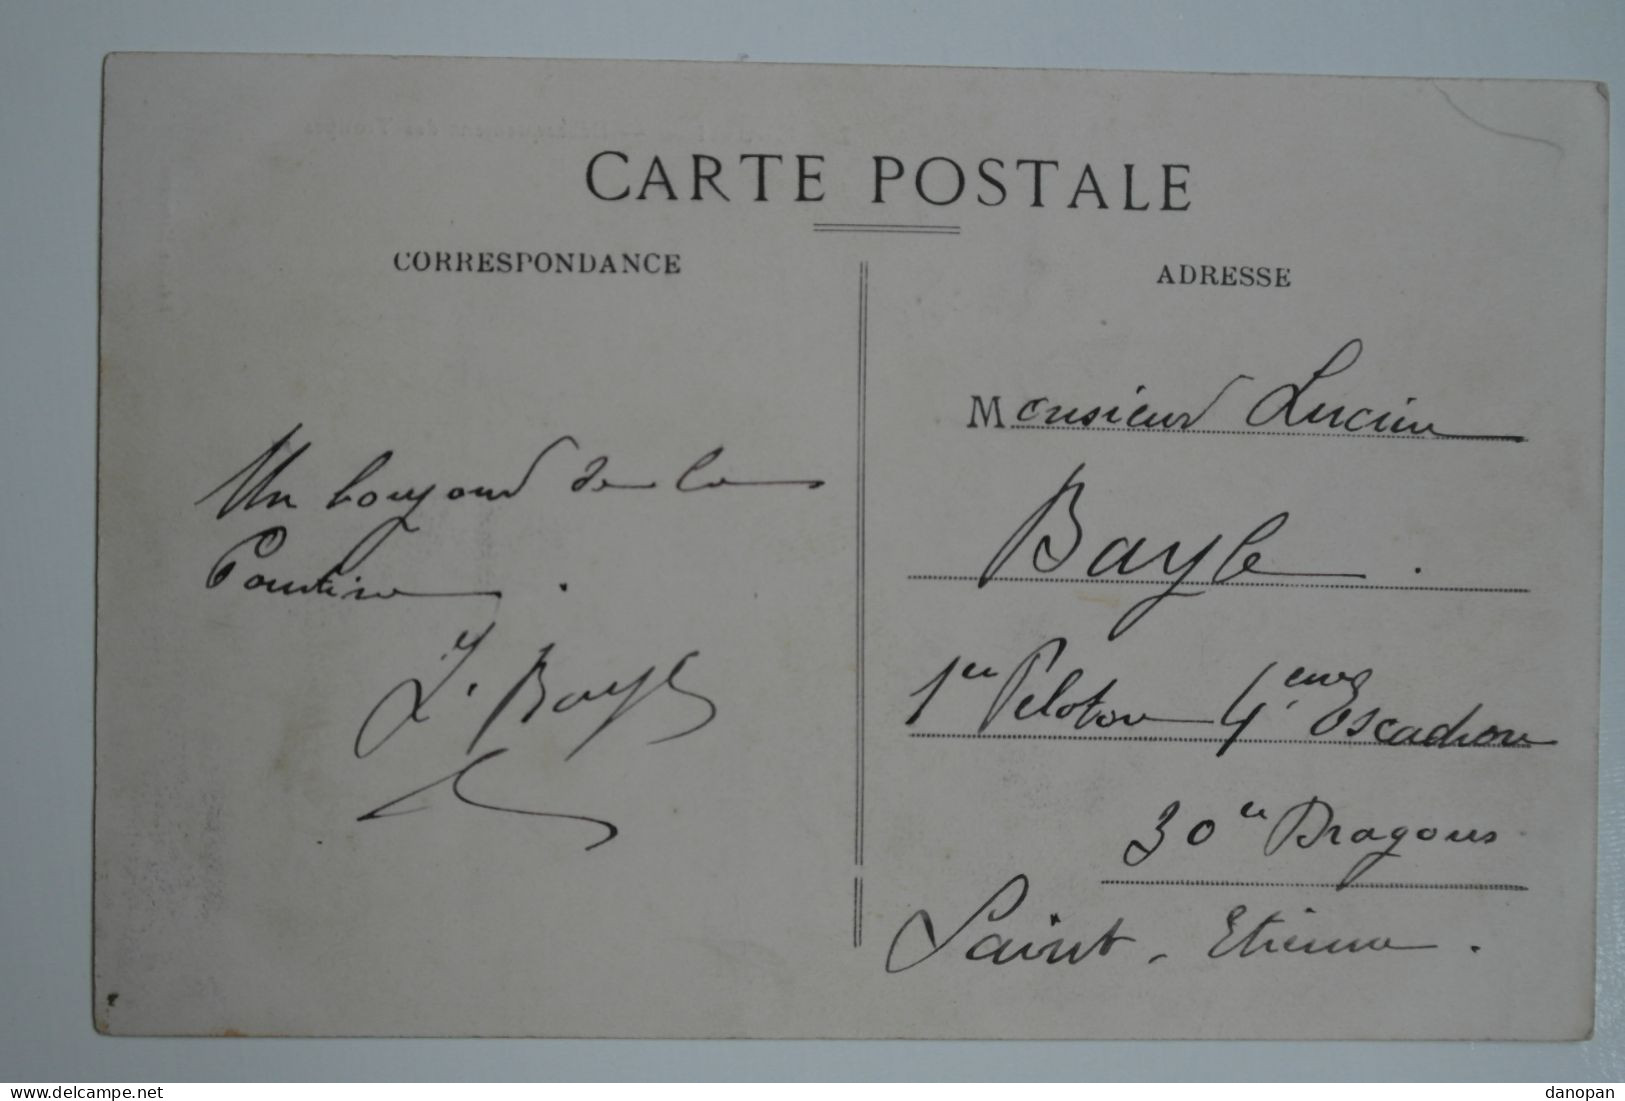 CARTE POSTALE
CORRESPONDANCE
Un bonjour de la
J. Bayle
ADRESSE
Monsieur Lucien
Bayle.
1er Peloton 4eme Escadron
30e Dragons
Saint-Etienne.
delcampe.net
danopan